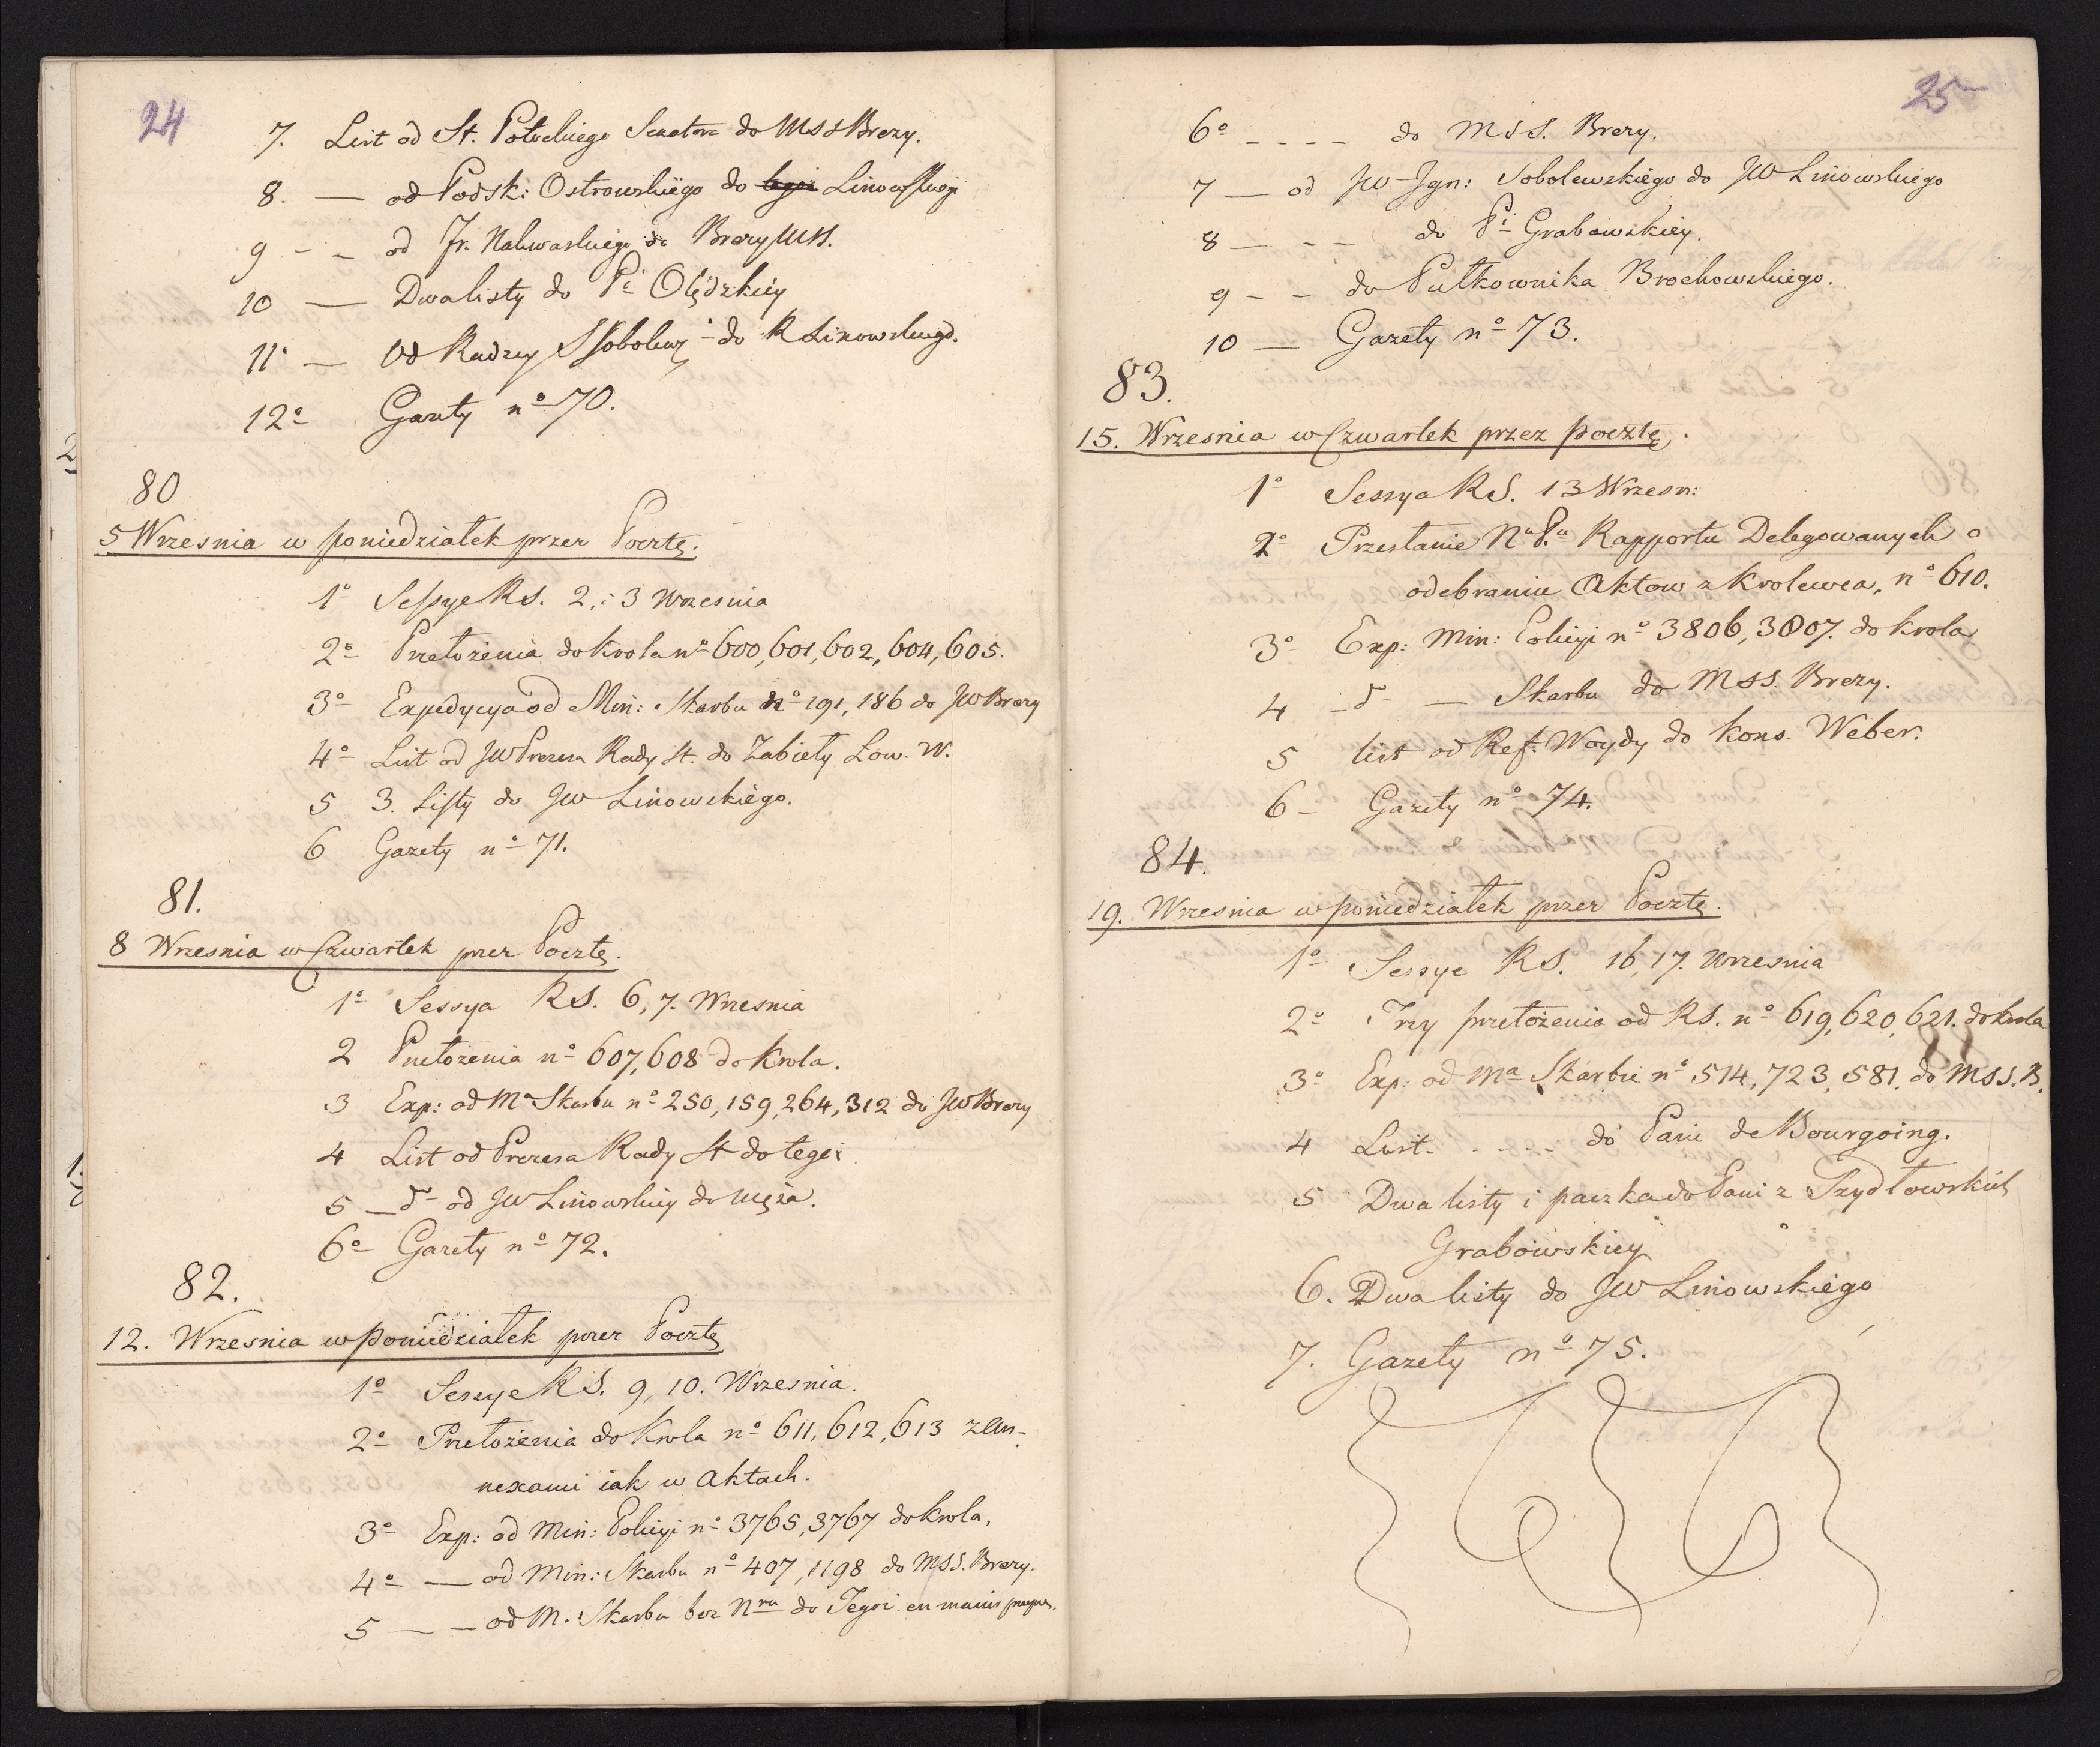 24
7. List od St. Potockiego Senatora do MSS Brezy.
8. — od Podsk: Ostrowskiego do Linowskiego
9 - - od Fr. Nakwaskiego do Brezy MSS.
10 — Dwa listy do Pi Olędzkiey
11 — Od Radzcy Sobolew: do R Linowskiego.
12o Gazety no 70.
80
5 Wrzesnia w poniedziałek przez Pocztę.
1o Sessye RS. 2, i 3 Wrzesnia
2o Przełożenia do Krola no 600, 601, 602, 604, 605.
3o Expedycya od Min: Skarbu no 191, 186 do JW Brezy
4o List od JW Prezesa Rady St. do Zabieły Łow. W.
5 3. Listy do JW Linowskiego.
6 Gazety no 71.
81.
8 Wrzesnia w Czwartek przez Pocztę.
1o Sessya RS. 6, 7. Wrzesnia
2 Przełożenia no 607, 608 do Krola.
3 Exp: od Ma Skarbu no 250, 159, 264, 312 do JW Brezy
4 List od Prezesa Rady St do tegoż
5 — do od JW Linowskiey do męża.
6o Gazety no 72.
82.
12. Wrzesnia w Poniedziałek przez Pocztę
1o Sessye RS. 9, 10. Wrzesnia.
2o Przełożenia do Krola no 611, 612, 613 z An-
nexami iak w Aktach.
3o Exp: od Min: Policyi no 3765, 3767 do Krola.
4o — od Min: Skarbu no 407, 1198 do MSS. Brezy.
5 — — od M. Skarbu bez Nru do Tegoż en mains propres.
25
6o - - - - do MSS. Brezy.
7 — od JW Ign: Sobolewskiego do JW Linowskiego
8 — - - do Pi Grabowskiey.
9 - - do Pułkownika Brochowskiego.
10 — Gazety no 73.
83.
15. Wrzesnia w Czwartek przez pocztę.
1o Sessya RS. 13 Wrzesn:
2o Przesłanie Rapportu Delegowanych o
odebraniu Aktow z Krolewca, no 610.
3o Exp: Min: Policyi no 3806, 3807. do Krola
4 - do — Skarbu do MSS. Brezy.
5 list od Ref. Woydy do Kons. Weber.
6 - Gazety no 74.
84.
19. Wrzesnia w poniedziałek przez Pocztę.
1o Sessye RS. 16, 17. Wrzesnia
2o Trzy przełożenia od RS. no 619, 620, 621. do Krola
3o Exp: od Ma Skarbu no 514, 723, 581. do MSS. B.
4 List. - - - - do Pani de Bourgoing.
5 Dwa listy i paczka do Pani z Szydłowskich
Grabowskiey
6. Dwa listy do JW Linowskiego
7. Gazety no 75.